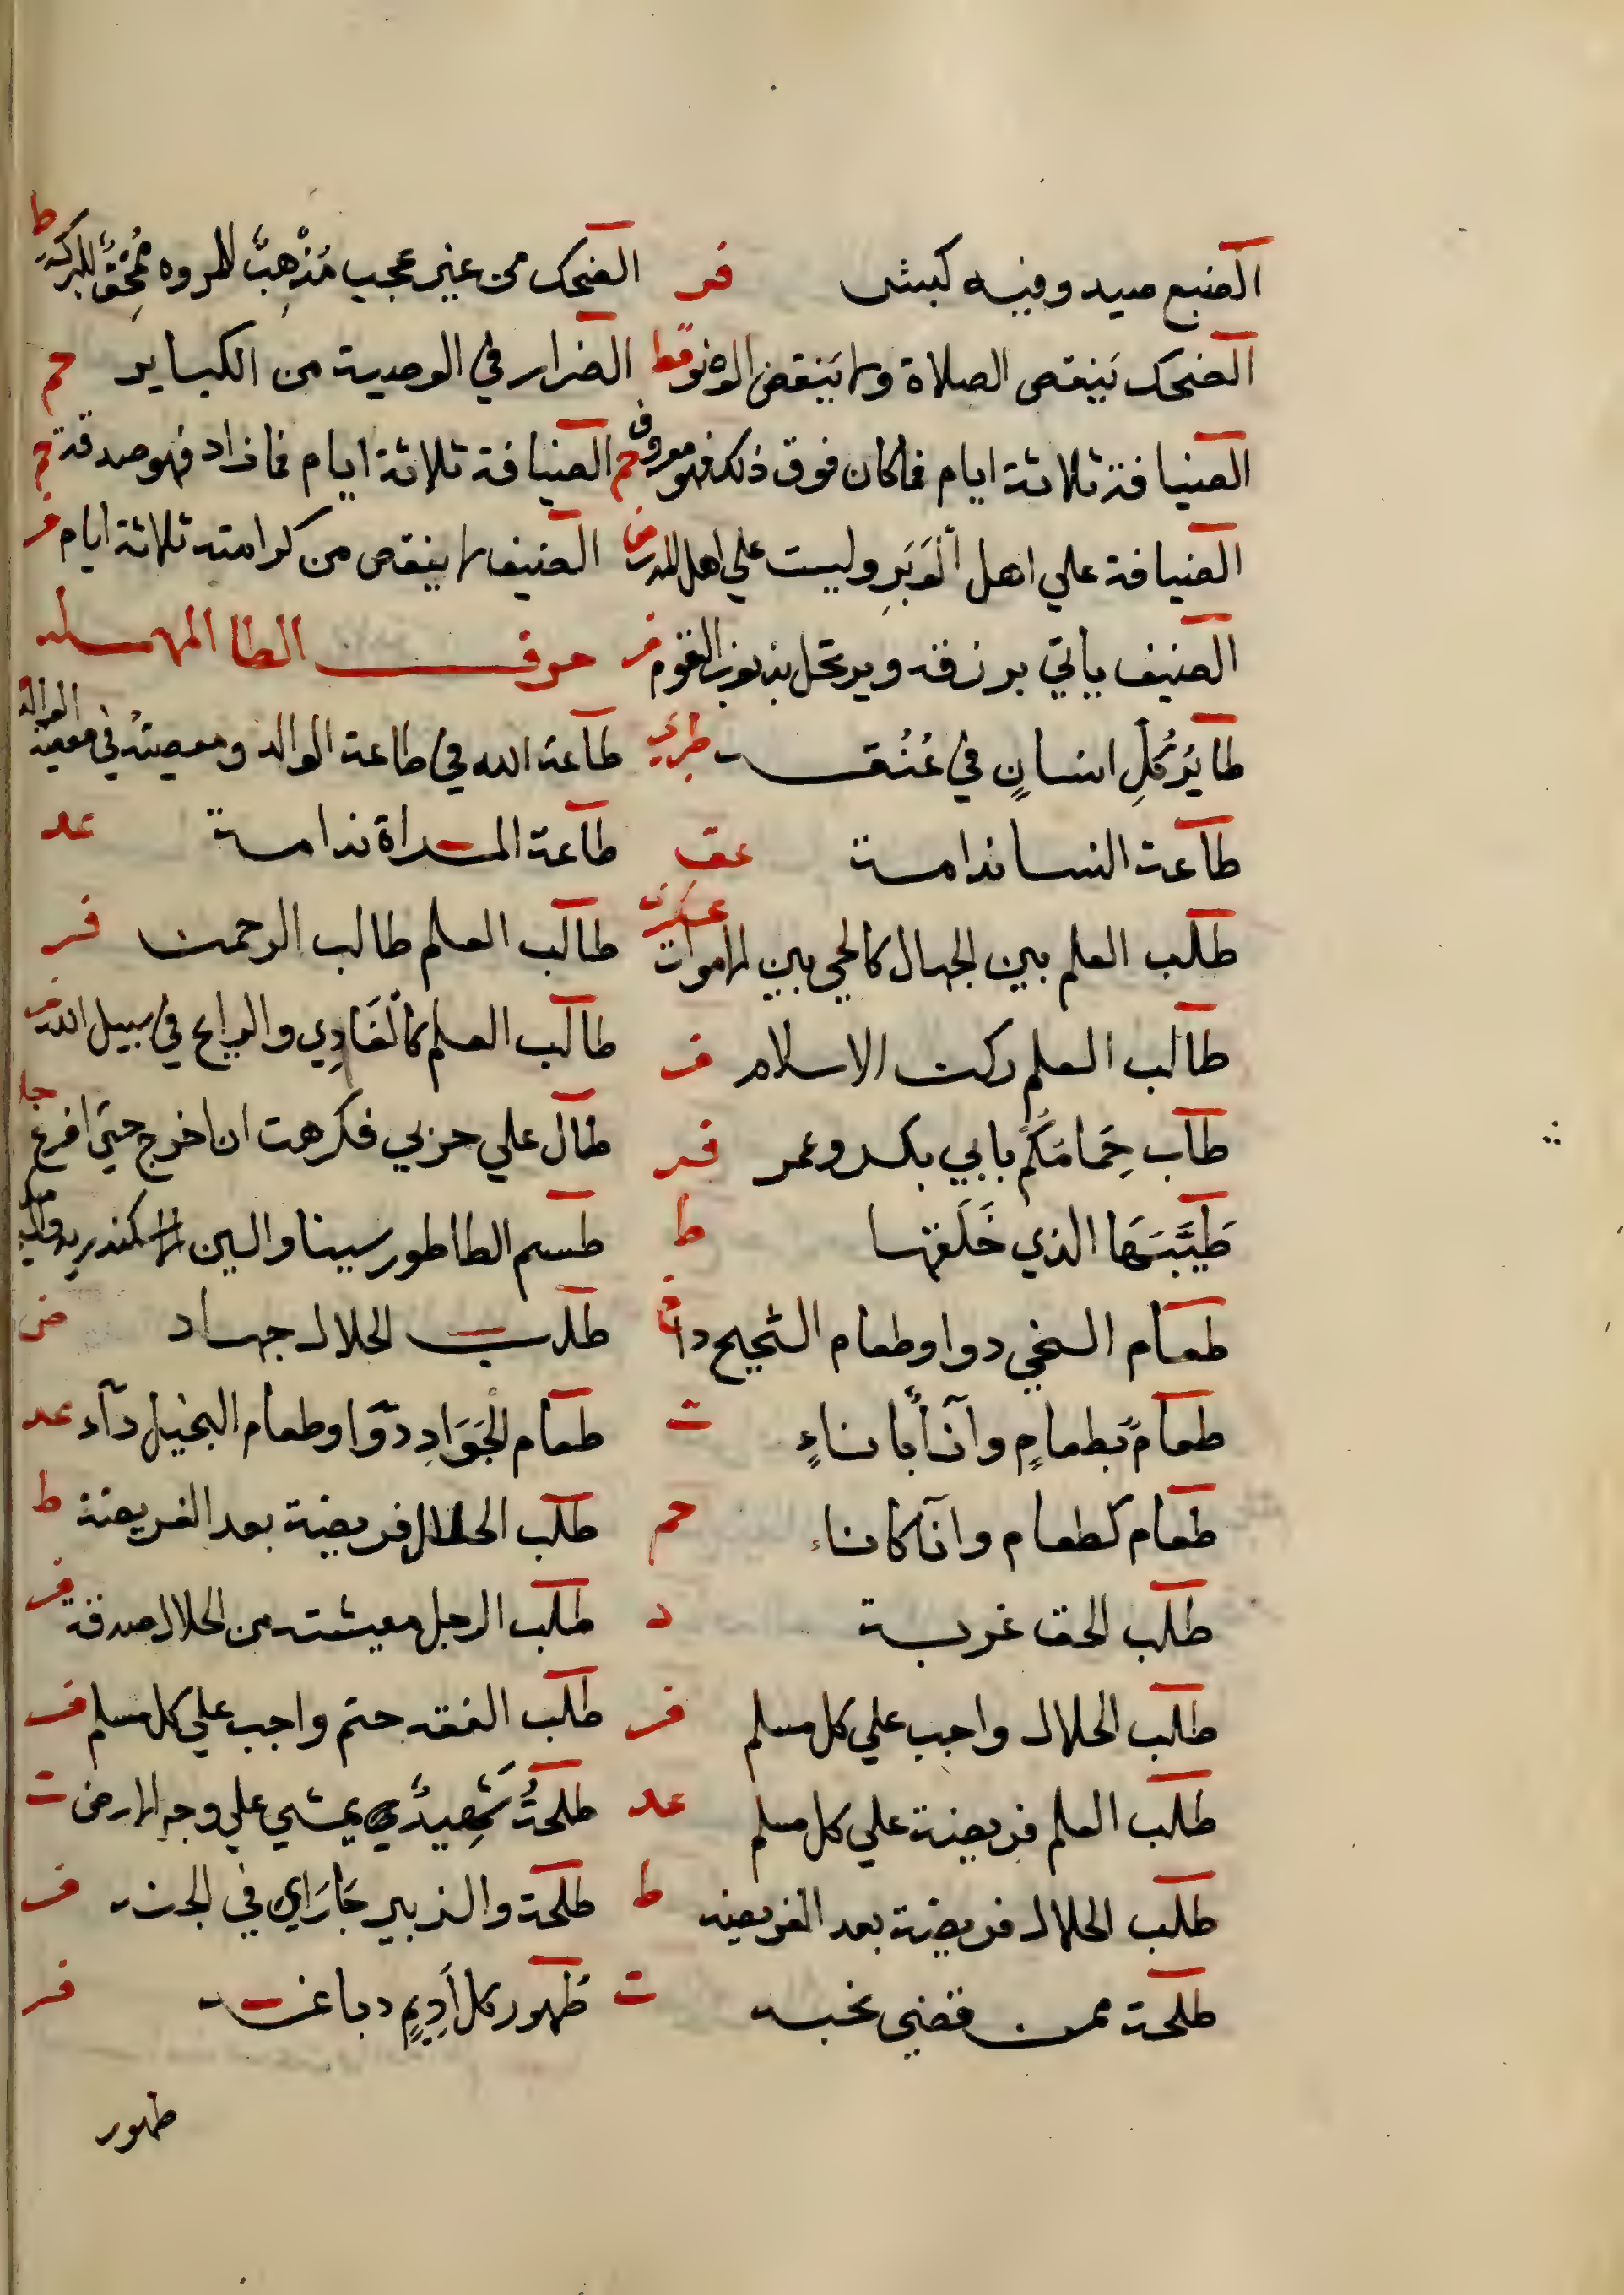 الضبع صيد وفيه كبش فر الضحك من غير عجب مُذْهِبٌ للمروه مُمْحِقٌ للبركة ط
الضحك يَنقص الصلاة ولا يَنقض الوضو قط الضرار في الوصية من الكباير حم
الضيافة ثلاثة ايام فما كان فوق ذلك فهو معروف حم الضيافة ثلاثة ايام فما زاد فهو صدقة حم
الضيافة علي اهل الْوَبَرِ وليست علي اهل المدر ض الضيف لا ينقص من كرامته ثلاثة ايام فر
الضيف ياتي برزقه ويرتحل بذنوب القوم فر حرف الطا المهمله
طايرُ كُلِّ انسانٍ في عُنُقه طبري طاعة الله في طاعة الوالد ومعصيته في معصية الوالد
طاعة النسا ندامة عق طاعة المراة ندامة عد
طلب العلم بين الجهال كالحي بين الاموات عسكري طالب العلم طالب الرحمة فر
طالب العلم ركن الاسلام فر طالب العلم كالْغَادِي والرايح في سبيل الله فر
طاب حِمَامُكُم بابي بكر وعمر فر طال علي حزبي فكرهت ان اخرج حتي افرغ جا
طَبِيبَهَا الذي خَلَقها ط طسم الطا طور سينا والسين الاسكندريه والميم مكه
طعام السخي دوا وطعام الشحيح دا طلب الحلال جهاد ض
طعامٌ بطعامٍ وانآءٌ باناءٍ ت طعام الْجَوَادِ دوآ وطعام البخيل دآء عد
طعام كطعام وانآ كاناء حم طلب الحلال فريضة بعد الفريضة ط
طلب الحق غربة د طلب الرجل معيشته من الحلال صدقة فر
طلب الحلال واجب علي كل مسلم فر طلب الفقه حتم واجب علي كل مسلم فر
طلب العلم فريضة علي كل مسلم عد طلحةُ شَهِيدٌ يمشي علي وجه الارض ت
طلب الحلال فريضة بعد الفريضه ط طلحة والزبير جَارَاي في الجنه فر
طلحة ممن قضي نحبه ت طَهور كل اَدِيمٍ دباغه فر
طهور